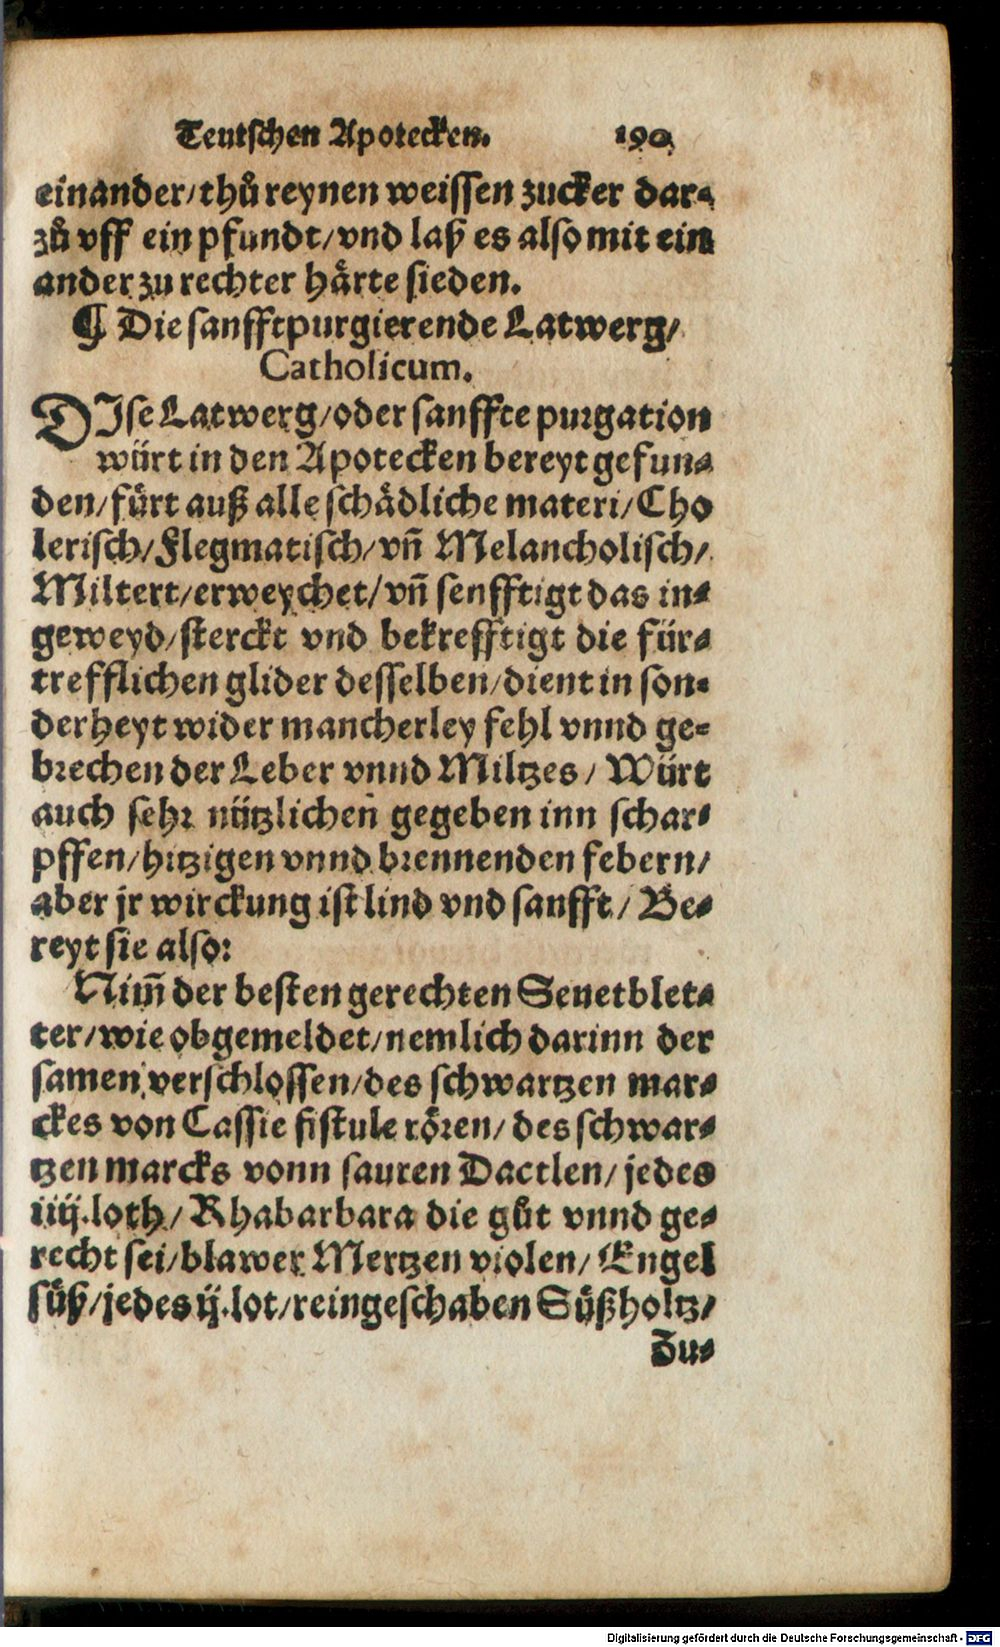 Teutschen Apotecken. 190.
einander/thuͦ reynen weissen zucker dar⸗
zuͦ vff ein pfundt/vnd laß es also mit ein
ander zu rechter haͤrte sieden.
¶ Die sanfftpurgierende Latwerg/
Catholicum.
DIse Latwerg/oder sanffte purgation
wuͤrt in den Apotecken bereyt gefun⸗
den/fuͤrt auß alle schaͤdliche materi/Cho
lerisch/Flegmatisch/vñ Melancholisch/
Miltert/erweychet/vñ senfftigt das in⸗
geweyd/sterckt vnd bekrefftigt die fuͤr⸗
trefflichen glider desselben/dient in son⸗
derheyt wider mancherley fehl vnnd ge⸗
brechen der Leber vnnd Miltzes/ Wuͤrt
auch sehr nuͤtzlichen gegeben inn schar⸗
pffen/hitzigen vnnd brennenden febern/
aber jr wirckung ist lind vnd sanfft/ Be⸗
reyt sie also:
Nim̃ der besten gerechten Senetblet⸗
ter/wie obgemeldet/nemlich darinn der
samen verschlossen/des schwartzen mar⸗
ckes von Cassie fistule roͤren/des schwar⸗
tzen marcks vonn sauren Dactlen/jedes
iiij.loth/ Rhabarbara die guͦt vnnd ge⸗
recht sei/blawer Mertzen violen/ Engel
suͤß/jedes ij.lot/reingeschaben Suͤßholtz/
Zu⸗
Digitalisierung gefördert durch die Deutsche Forschungsgemeinschaft - DFG